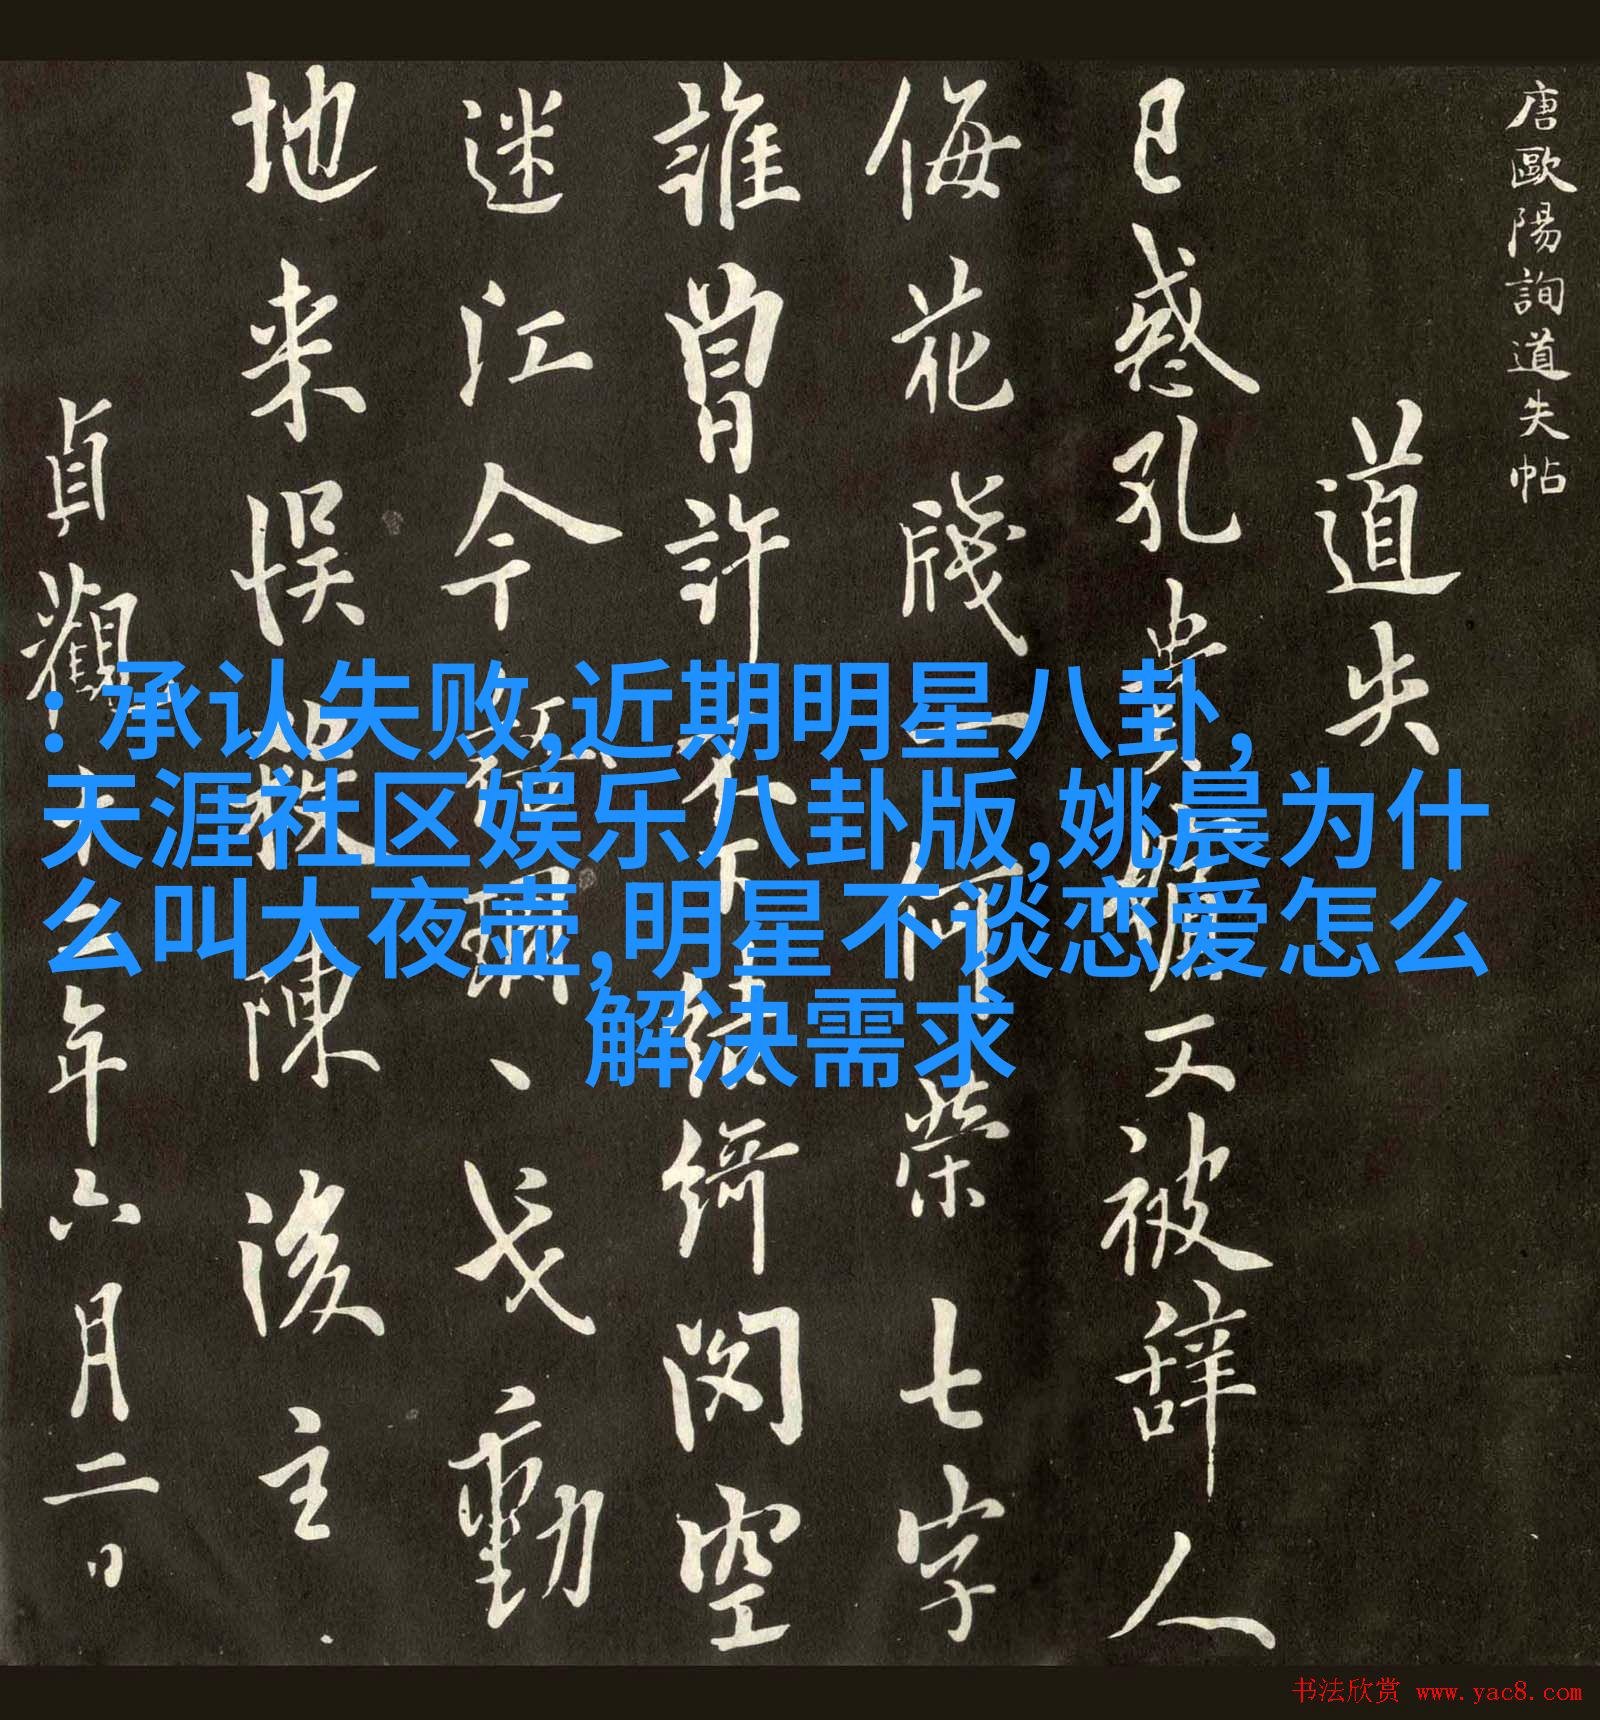 唐歐陽詢道失帖
道失
已惑孔貴又被辭人
侮花牋一何榮七字
誰曾許不下結綺閣空
迷江令珊、戈動
地来误殺陳後主
貞觀年六月二日
: 承认失败,近期明星八卦,
天涯社区娱乐八卦版,姚晨为什
么叫大夜壶,明星不谈恋爱怎么
解决需求
书法欣赏 www.yac8.com